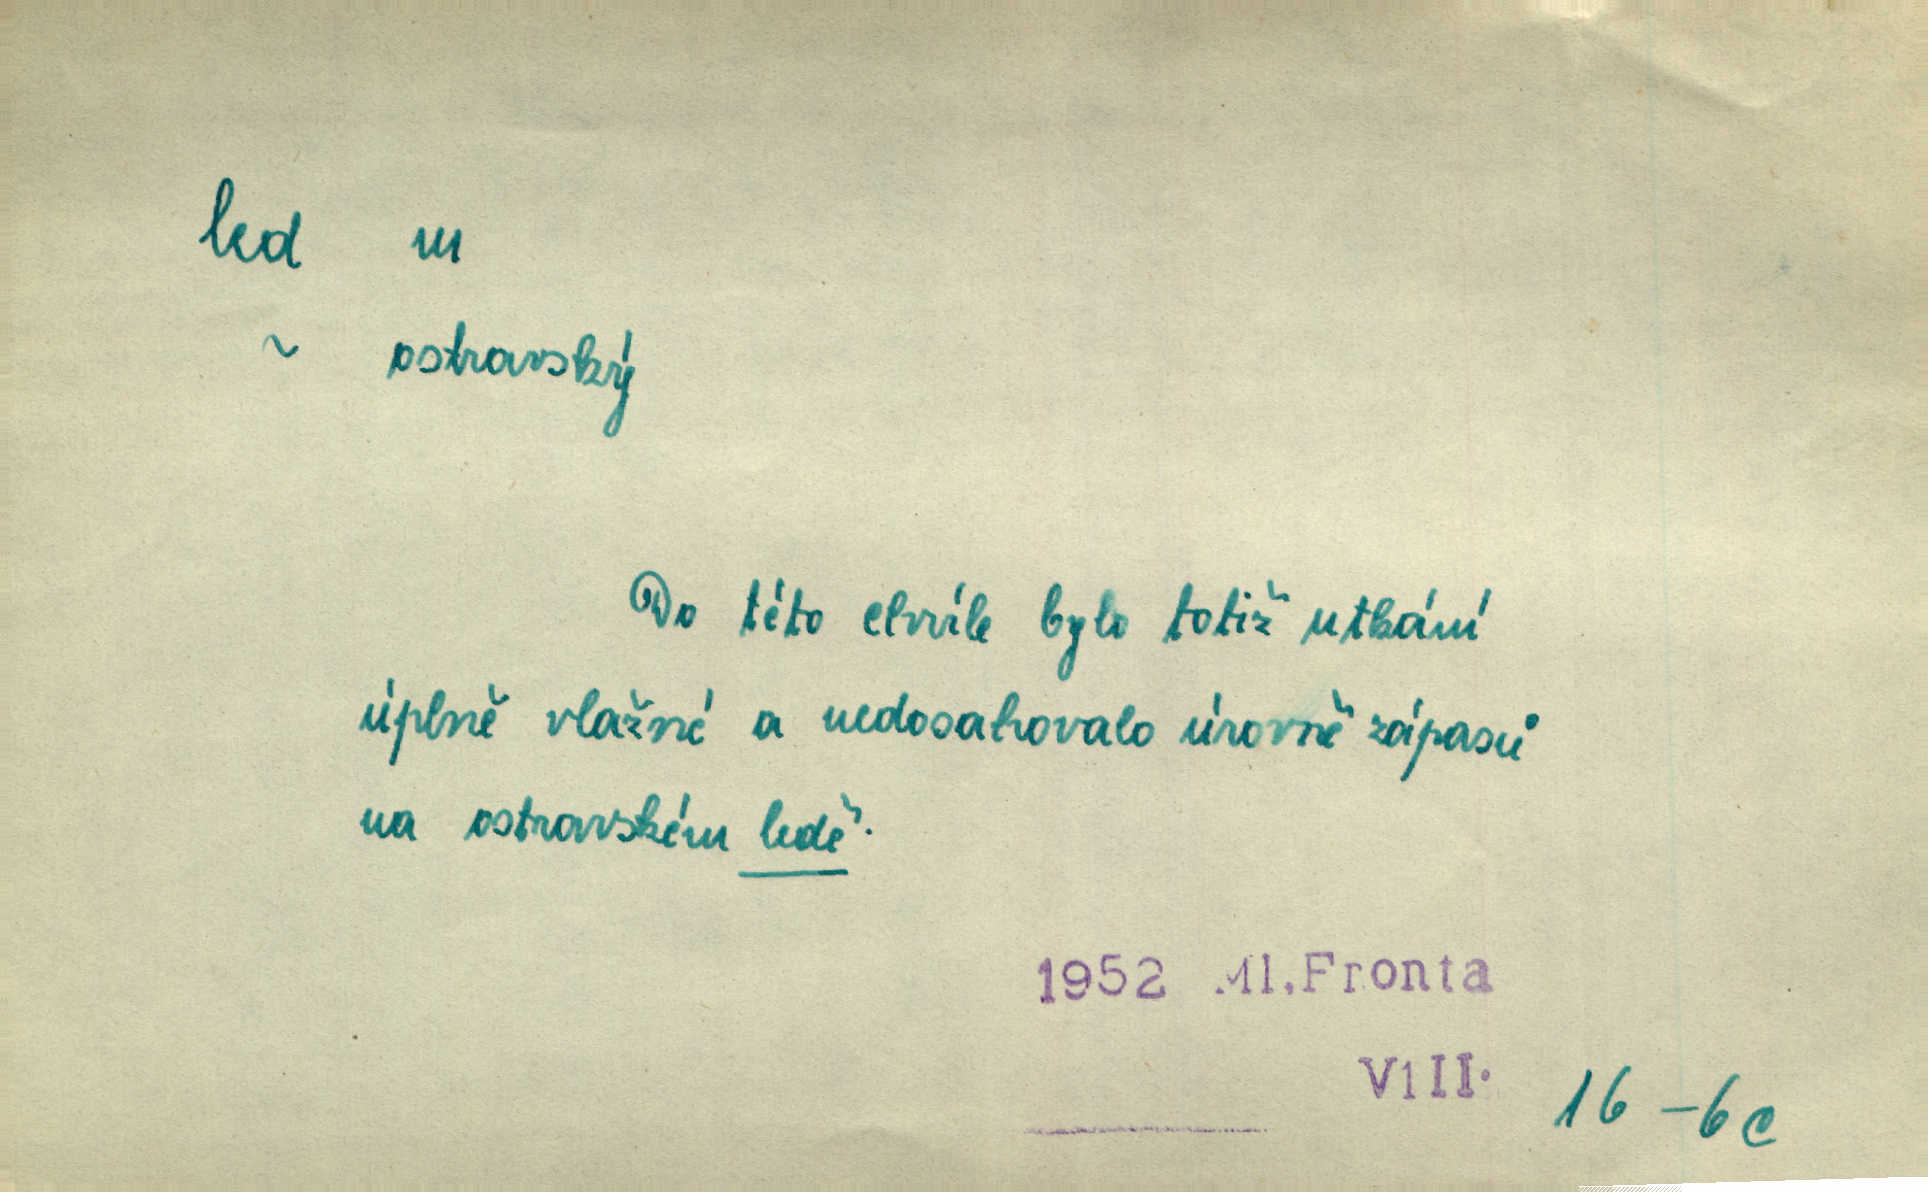 led m
~ ostravský
Do této chvíle bylo totiž utkání
úplně vlažné a nedosahovalo úrovně zápasů
na ostravském ledě.
1952 Ml.Fronta
VIII.
16 - 6c